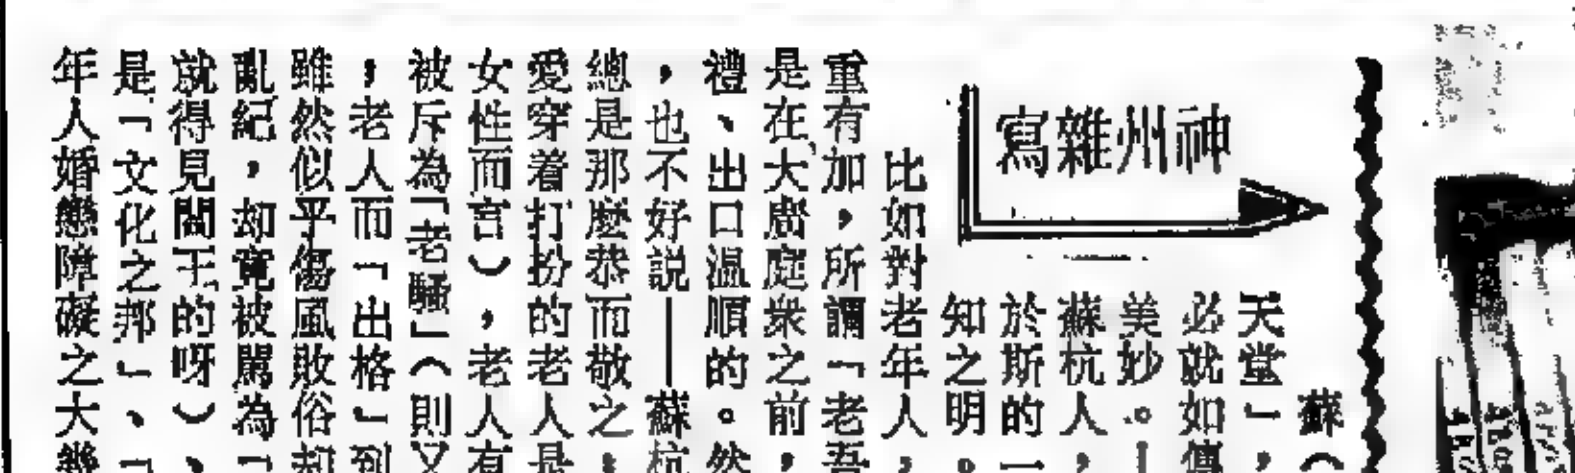 神州雜寫
蘇（
天堂」，
必就如傳
美妙。
蘇杭人，
於斯的一
知之明。
比如對老年人，
重有加，所謂「老吾
是在大廣庭衆之前，
禮、出口温順的。然
，也不好説——蘇杭
總是那麼恭而敬之，
愛穿着打扮的老人是
女性而言），老人有
被斥為「老騷」（則又
，老人而「出格」到
雖然似乎傷風敗俗却
亂紀，却竟被駡為「
就得見閻王的呀）、
是「文化之邦」、「
年人婚戀障礙之大幾